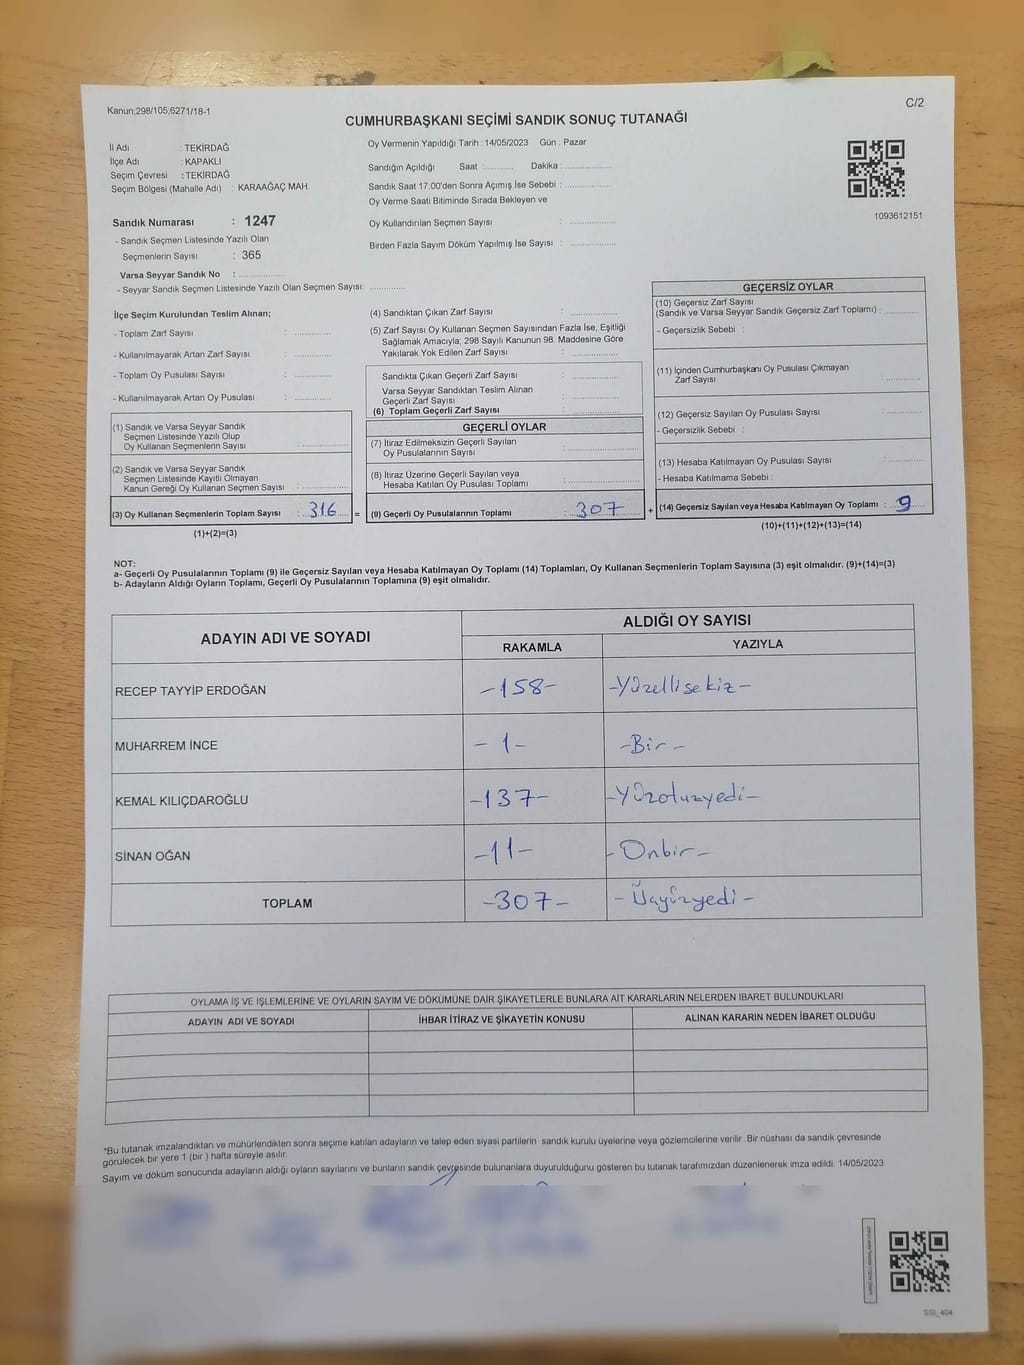 Kanun;298/105;6271/18-1
C/2
CUMHURBAŞKANI SEÇİMİ SANDIK SONUÇ TUTANAĞI
İl Adı : TEKİRDAĞ
İlçe Adı : KAPAKLI
Seçim Çevresi : TEKİRDAĞ
Seçim Bölgesi (Mahalle Adı) : KARAAĞAÇ MAH.
Oy Vermenin Yapıldığı Tarih : 14/05/2023 Gün : Pazar
Sandığın Açıldığı Saat :............ Dakika :..................
Sandık Saat 17:00'den Sonra Açımış İse Sebebi :..................
Oy Verme Saati Bitiminde Sırada Bekleyen ve
Oy Kullandırılan Seçmen Sayısı :..................
Birden Fazla Sayım Döküm Yapılmış İse Sayısı :..................
1093612151
Sandık Numarası : 1247
- Sandık Seçmen Listesinde Yazılı Olan
Seçmenlerin Sayısı : 365
Varsa Seyyar Sandık No :..................
- Seyyar Sandık Seçmen Listesinde Yazılı Olan Seçmen Sayısı: ..............
İlçe Seçim Kurulundan Teslim Alınan;
- Toplam Zarf Sayısı : ..............
- Kullanılmayarak Artan Zarf Sayısı : ..............
- Toplam Oy Pusulası Sayısı : ..............
- Kullanılmayarak Artan Oy Pusulası : ..............
(1) Sandık ve Varsa Seyyar Sandık
Seçmen Listesinde Yazılı Olup
Oy Kullanan Seçmenlerin Sayısı :..................
(2) Sandık ve Varsa Seyyar Sandık
Seçmen Listesinde Kayıtlı Olmayan
Kanun Gereği Oy Kullanan Seçmen Sayısı :..................
(3) Oy Kullanan Seçmenlerin Toplam Sayısı : 316 =
(1)+(2)=(3)
(4) Sandıktan Çıkan Zarf Sayısı :..................
(5) Zarf Sayısı Oy Kullanan Seçmen Sayısından Fazla İse, Eşitliği
Sağlamak Amacıyla; 298 Sayılı Kanunun 98. Maddesine Göre
Yakılarak Yok Edilen Zarf Sayısı :..................
Sandıkta Çıkan Geçerli Zarf Sayısı :..................
Varsa Seyyar Sandıktan Teslim Alınan
Geçerli Zarf Sayısı :..................
(6) Toplam Geçerli Zarf Sayısı :..................
GEÇERLİ OYLAR
(7) İtiraz Edilmeksizin Geçerli Sayılan
Oy Pusulalarının Sayısı :..................
(8) İtiraz Üzerine Geçerli Sayılan veya
Hesaba Katılan Oy Pusulası Toplamı :..................
(9) Geçerli Oy Pusulalarının Toplamı : 307 +
GEÇERSİZ OYLAR
(10) Geçersiz Zarf Sayısı
(Sandık ve Varsa Seyyar Sandık Geçersiz Zarf Toplamı) :..............
- Geçersizlik Sebebi :
(11) İçinden Cumhurbaşkanı Oy Pusulası Çıkmayan
Zarf Sayısı :..............
(12) Geçersiz Sayılan Oy Pusulası Sayısı :..............
- Geçersizlik Sebebi :
(13) Hesaba Katılmayan Oy Pusulası Sayısı :..............
- Hesaba Katılmama Sebebi :
(14) Geçersiz Sayılan veya Hesaba Katılmayan Oy Toplamı : 9
(10)+(11)+(12)+(13)=(14)
NOT:
a- Geçerli Oy Pusulalarının Toplamı (9) ile Geçersiz Sayılan veya Hesaba Katılmayan Oy Toplamı (14) Toplamları, Oy Kullanan Seçmenlerin Toplam Sayısına (3) eşit olmalıdır. (9)+(14)=(3)
b- Adayların Aldığı Oyların Toplamı, Geçerli Oy Pusulalarının Toplamına (9) eşit olmalıdır.
ADAYIN ADI VE SOYADI
ALDIĞI OY SAYISI
RAKAMLA YAZIYLA
RECEP TAYYİP ERDOĞAN -158- -Yüzellisekiz-
MUHARREM İNCE -1- -Bir-
KEMAL KILIÇDAROĞLU -137- -Yüzotuzyedi-
SİNAN OĞAN -11- -Onbir-
TOPLAM -307- -Üçyüzyedi-
OYLAMA İŞ VE İŞLEMLERİNE VE OYLARIN SAYIM VE DÖKÜMÜNE DAİR ŞİKAYETLERLE BUNLARA AİT KARARLARIN NELERDEN İBARET BULUNDUKLARI
ADAYIN ADI VE SOYADI İHBAR İTİRAZ VE ŞİKAYETİN KONUSU ALINAN KARARIN NEDEN İBARET OLDUĞU
*Bu tutanak imzalandıktan ve mühürlendikten sonra seçime katılan adayların ve talep eden siyasi partilerin sandık kurulu üyelerine veya gözlemcilerine verilir. Bir nüshası da sandık çevresinde
görülecek bir yere 1 (bir ) hafta süreyle asılır.
Sayım ve döküm sonucunda adayların aldığı oyların sayılarını ve bunların sandık çevresinde bulunanlara duyurulduğunu gösteren bu tutanak tarafımızdan düzenlenerek imza edildi. 14/05/2023